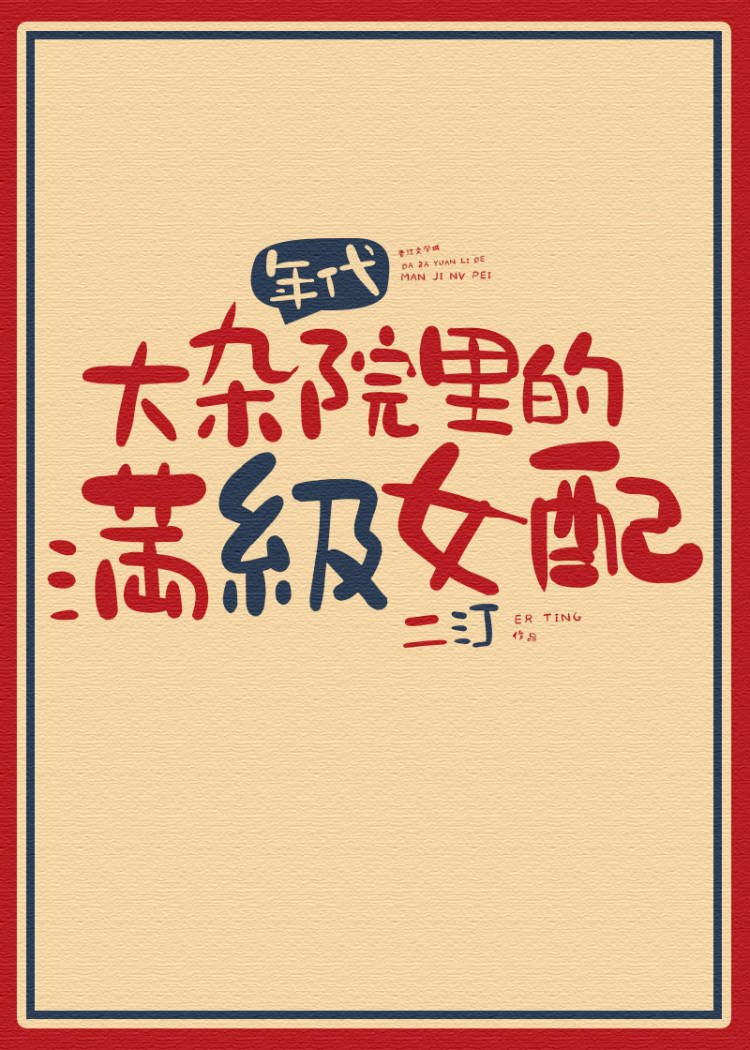 年代
晋江文学城
DA ZA YUAN LI DE
MAN JI NV PEI
大杂院里的
满級女配
二汀
ER TING
作品